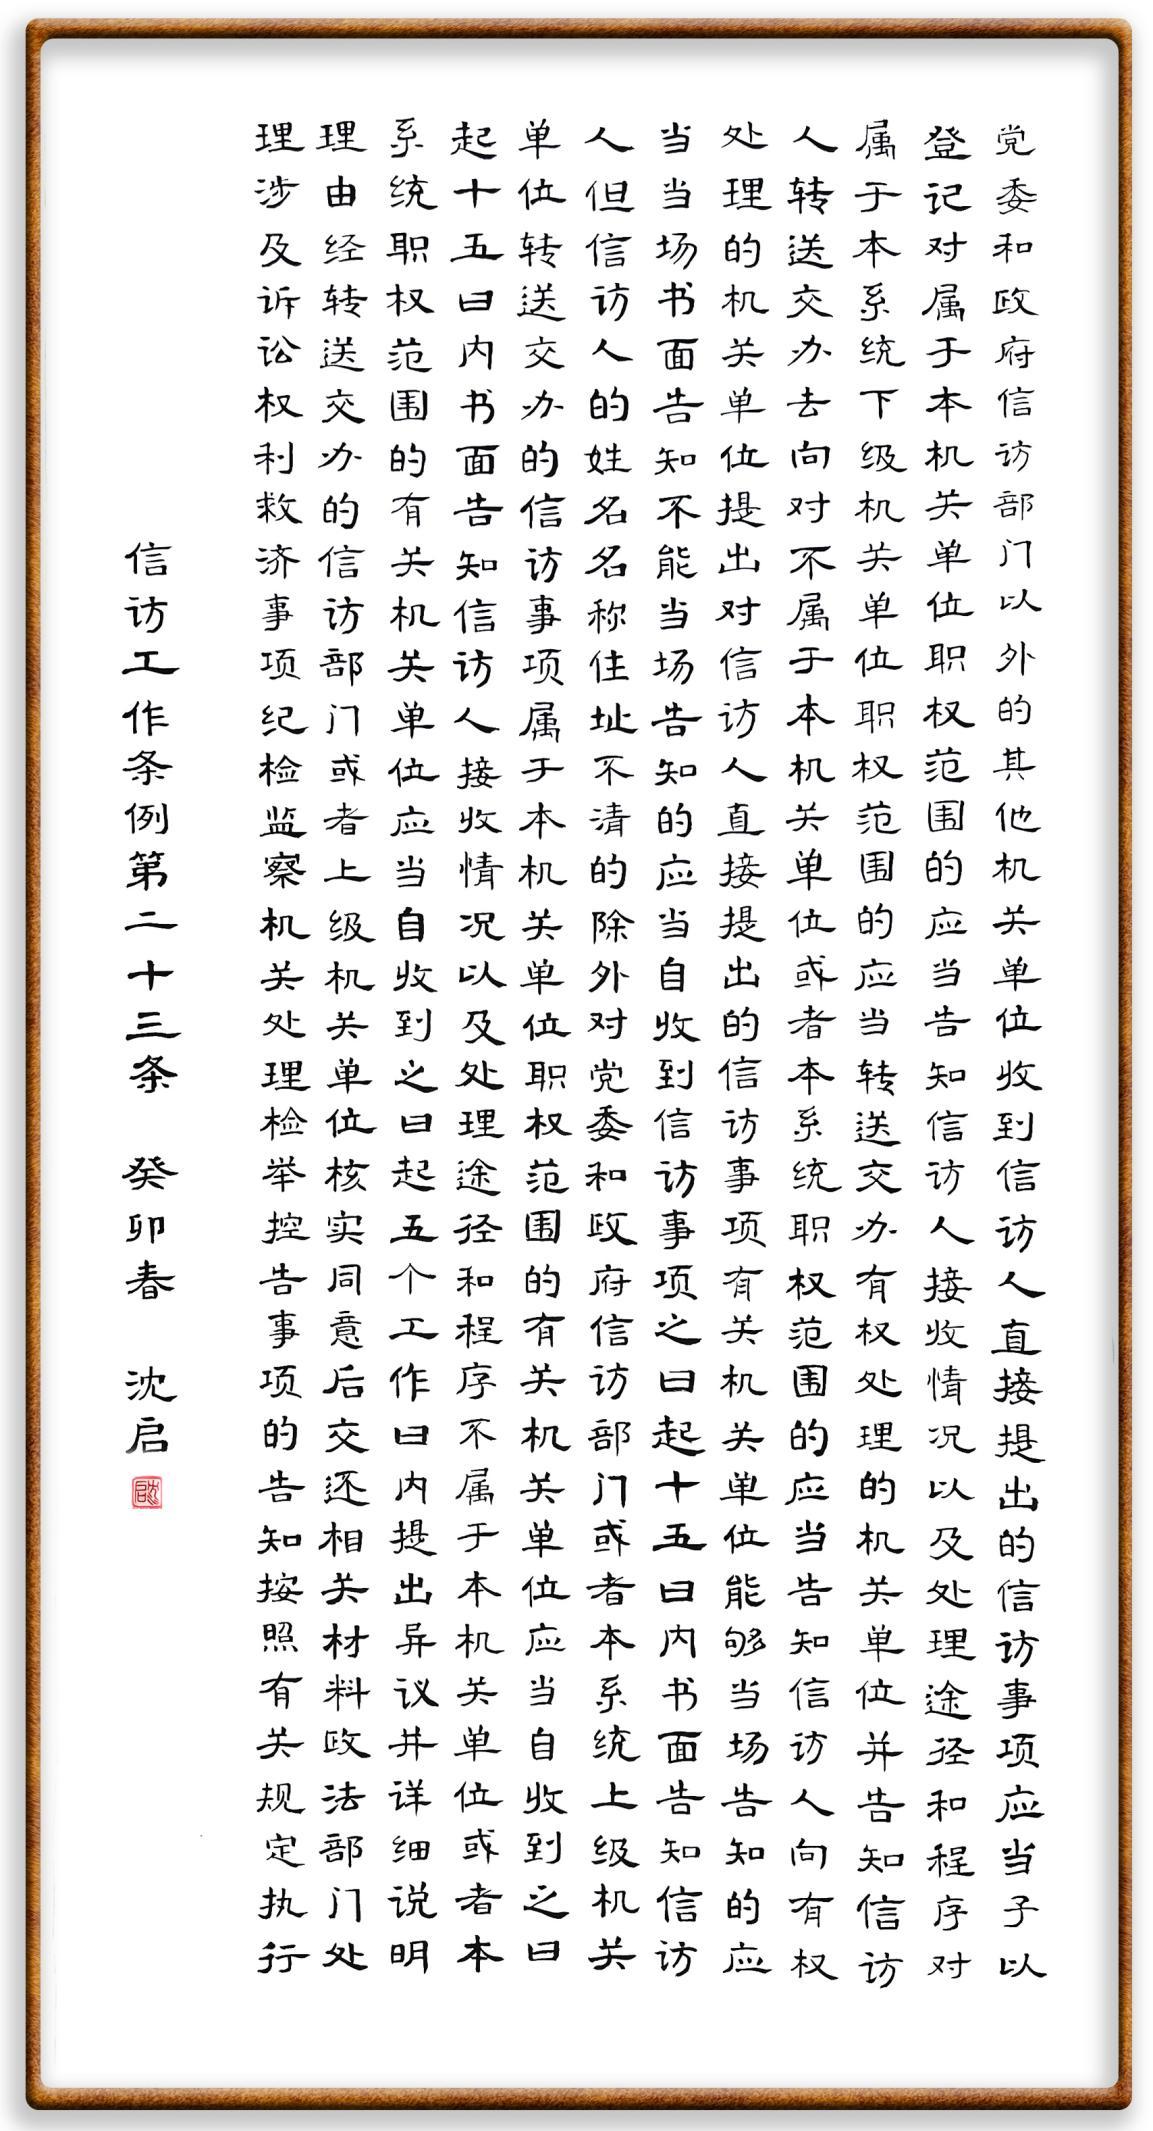 党委和政府信访部门以外的其他机关单位收到信访人直接提出的信访事项应当予以
登记对属于本机关单位职权范围的应当告知信访人接收情况以及处理途径和程序对
属于本系统下级机关单位职权范围的应当转送交办有权处理的机关单位并告知信访
人转送交办去向对不属于本机关单位或者本系统职权范围的应当告知信访人向有权
处理的机关单位提出对信访人直接提出的信访事项有关机关单位能够当场告知的应
当当场书面告知不能当场告知的应当自收到信访事项之日起十五日内书面告知信访
人但信访人的姓名名称住址不清的除外对党委和政府信访部门或者本系统上级机关
单位转送交办的信访事项属于本机关单位职权范围的有关机关单位应当自收到之日
起十五日内书面告知信访人接收情况以及处理途径和程序不属于本机关单位或者本
系统职权范围的有关机关单位应当自收到之日起五个工作日内提出异议并详细说明
理由经转送交办的信访部门或者上级机关单位核实同意后交还相关材料政法部门处
理涉及诉讼权利救济事项纪检监察机关处理检举控告事项的告知按照有关规定执行
信访工作条例第二十三条 癸卯春 沈启